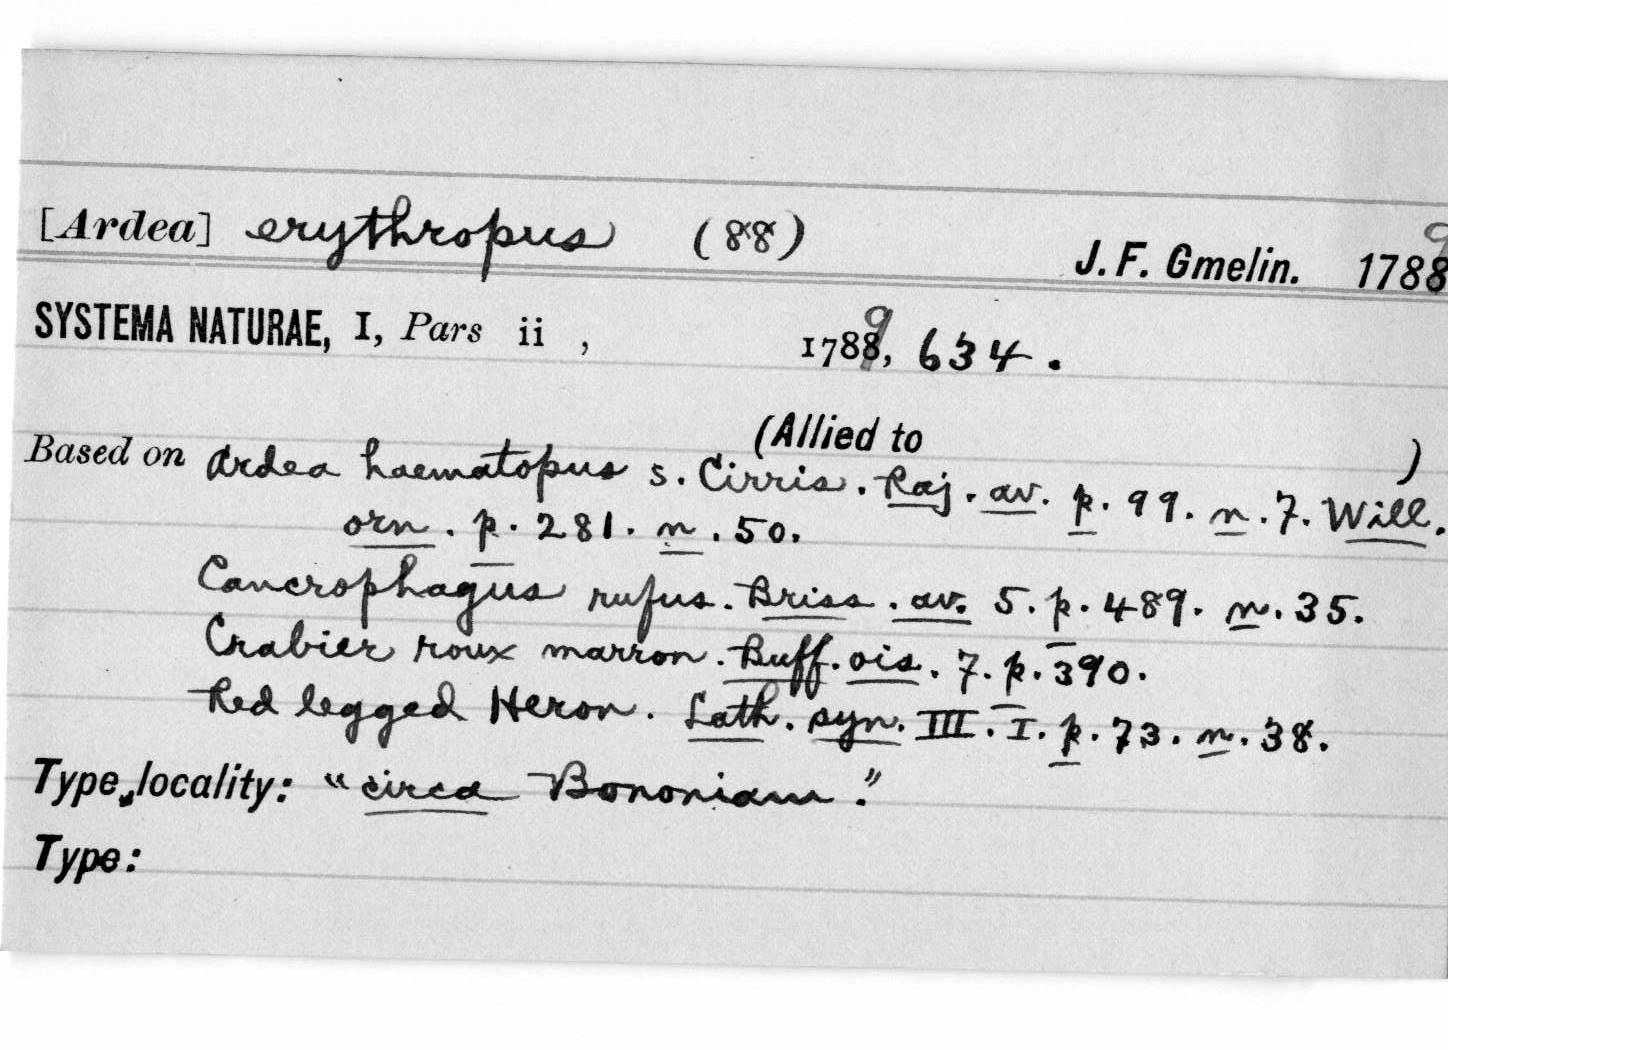 [Ardea] erythropus (88) J. F. Gmelin. 1789
SYSTEMA NATURAE, I, Pars ii , 1789, 634.
(Allied to )
Based on Ardea haematopus s. Cirris. Raj. av. p. 99. n. 7. Will.
orn. p. 281. n. 50.
Cancrophagus rufus. Briss. av. 5. p. 489. n. 35.
Crabier roux marron. Buff. ois. 7. p. 390.
Red legged Heron. Lath. syn. III. I. p. 73. n. 38.
Type locality: "circa Bononiam."
Type: